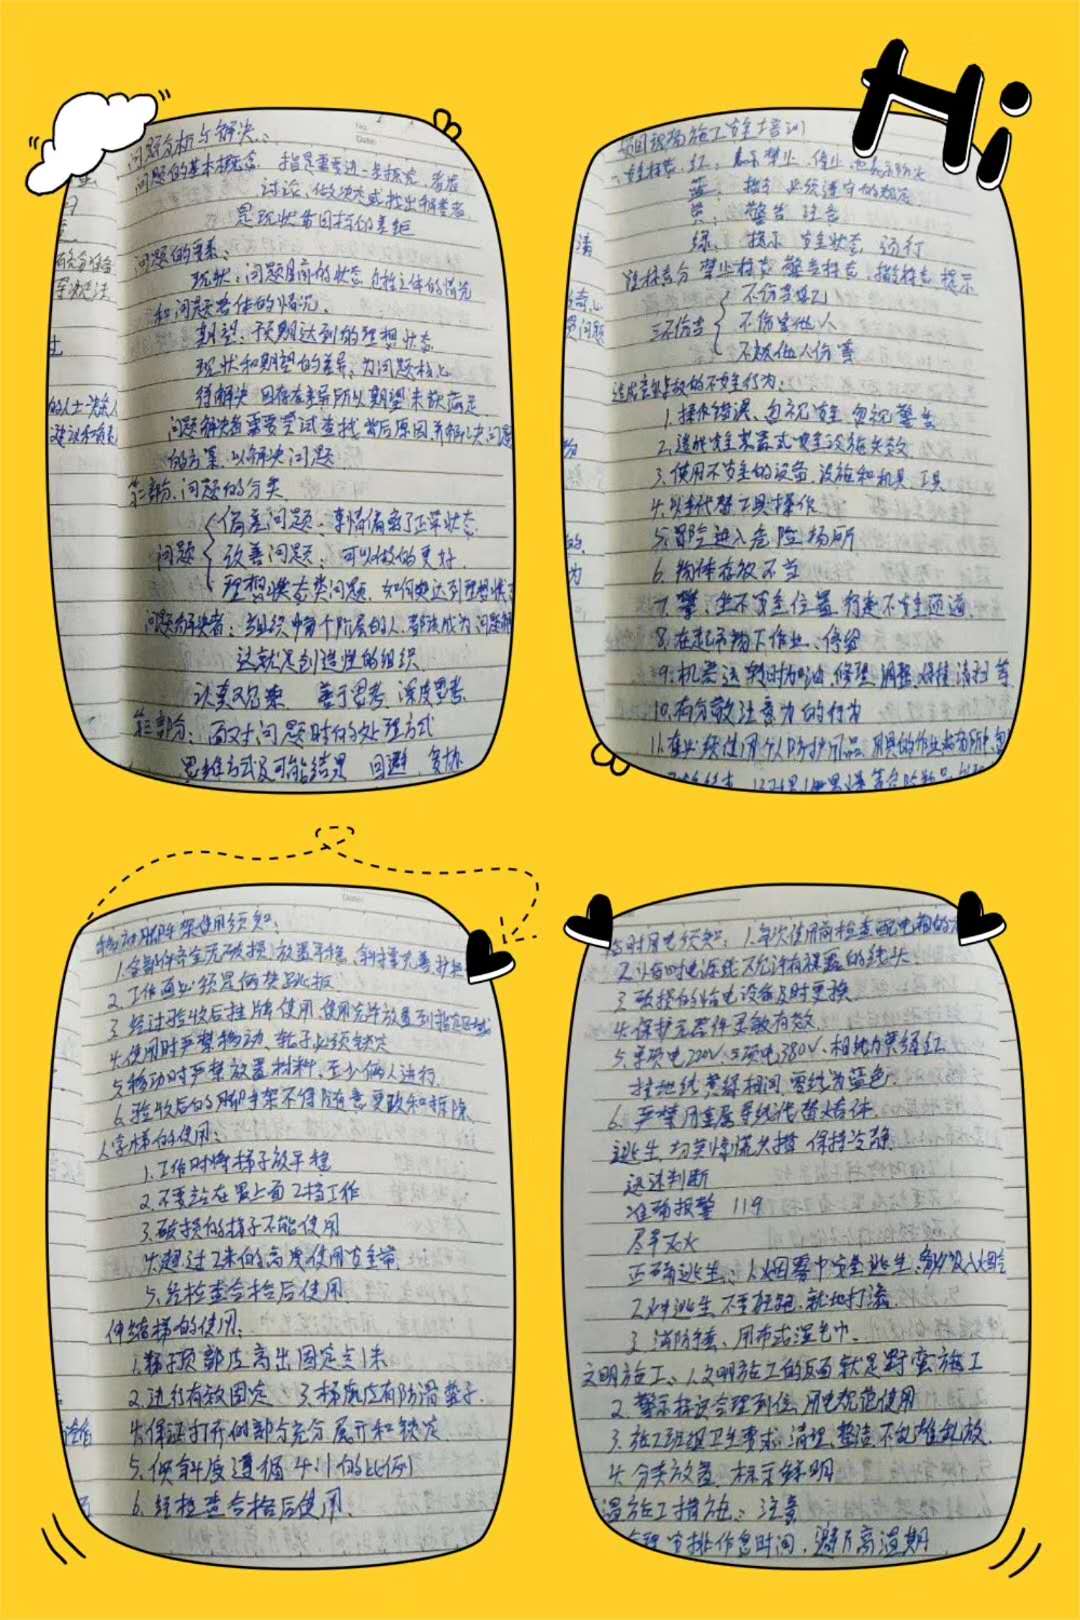 Hi
问题分析与解决：
问题的基本概念：指是需要进一步探究、考虑
讨论、做决定或找出和
是现状与目标的差距
问题的要素：
现状：问题目前的状态 包括主体的情况
和问题客体的情况、
期望：预期达到的理想状态
现状和期望的差异，为问题核心
待解决 因存在差异所以期望未获满足
问题解决者需要尝试查找背后原因，并解决问题
的方案，以解决问题.
第二部分、问题的分类.
问题
偏差问题：事情偏离了正常状态
改善问题：可以做的更好
理想状态类问题：如何更达到理想状
问题解决者：当组织中每个阶层的人，都能成为问题解
这就是创造性的组织.
认真观察 善于思考 深度思考.
第三部分：面对问题时的处理方式
思维方式及可能结果 回避
项目现场施工安全培训
安全标志：红：表示禁止、停止 也表示防火
蓝：指令 必须遵守的规定
黄：警告 注意
绿：提示 安全状态 通行
禁止标志 警告标志、指令标志 提示
三不伤害
不伤害自己
不伤害他人
不被他人伤害
造成安全事故的不安全行为：
1.操作错误、忽视安全、忽视警告
2.造成安全装置失效
3.使用不安全的设备、设施和机具、工具
4.以手代替工具操作
5.冒险进入危险场所
6.物体存放不当
7.攀、坐不安全位置，行走不安全通道.
8.在起吊物下作业、停留
9.机器运转时加油、修理、调整、焊接、清扫等
10.有分散注意力的行为
11.在必须使用个人防护用品、用具的作业场所中,忽
移动脚手架使用须知：
1.全部件齐全无破损、放置平稳、斜撑完善,
2.工作面必须是满铺跳板.
3.经过验收后挂牌使用，使用完毕放置到指定区域
4.使用时严禁移动、轮子必须锁定
5.移动时严禁放置材料、至少俩人进行.
6.验收后的脚手架不得随意更改和拆除.
人字梯的使用：
1.工作时将梯子放平稳
2.不要站在最上面2档工作
3.破损的梯子不能使用
4.超过2米的高度使用安全带.
5.经检查合格后使用.
伸缩梯的使用：
1.梯子顶部应高出固定点1米
2.进行有效固定 3.梯底应有防滑垫子.
4.保证打开的部分充分展开和锁定
5.倾斜度遵循4:1的比例
6.经检查合格后使用.
临时用电须知：1.每次使用前检查配电箱的
2.临时电源线不允许有裸露的线头
3.破损的用电设备及时更换.
4.保护元器件灵敏有效.
5.单项电220V、三项电380V、相线为黄绿红
接地线黄绿相间、零线为蓝色.
6.严禁用金属导线代替熔体.
逃生：切莫惊慌失措 保持冷静
迅速判断
准确报警 119
尽早灭火
正确逃生：1.烟雾中安全逃生、
2.火中逃生、不要狂跑、就地打滚.
3.用布或湿毛巾.
文明施工：1.文明施工的反面就是野蛮施工
2.警示标识合理到位,用电规范使用
3.施工班组卫生要求：清理、整洁、不乱堆乱放.
4.分类放置、标示鲜明
高温施工措施：注意
合理安排作息时间、避开高温期